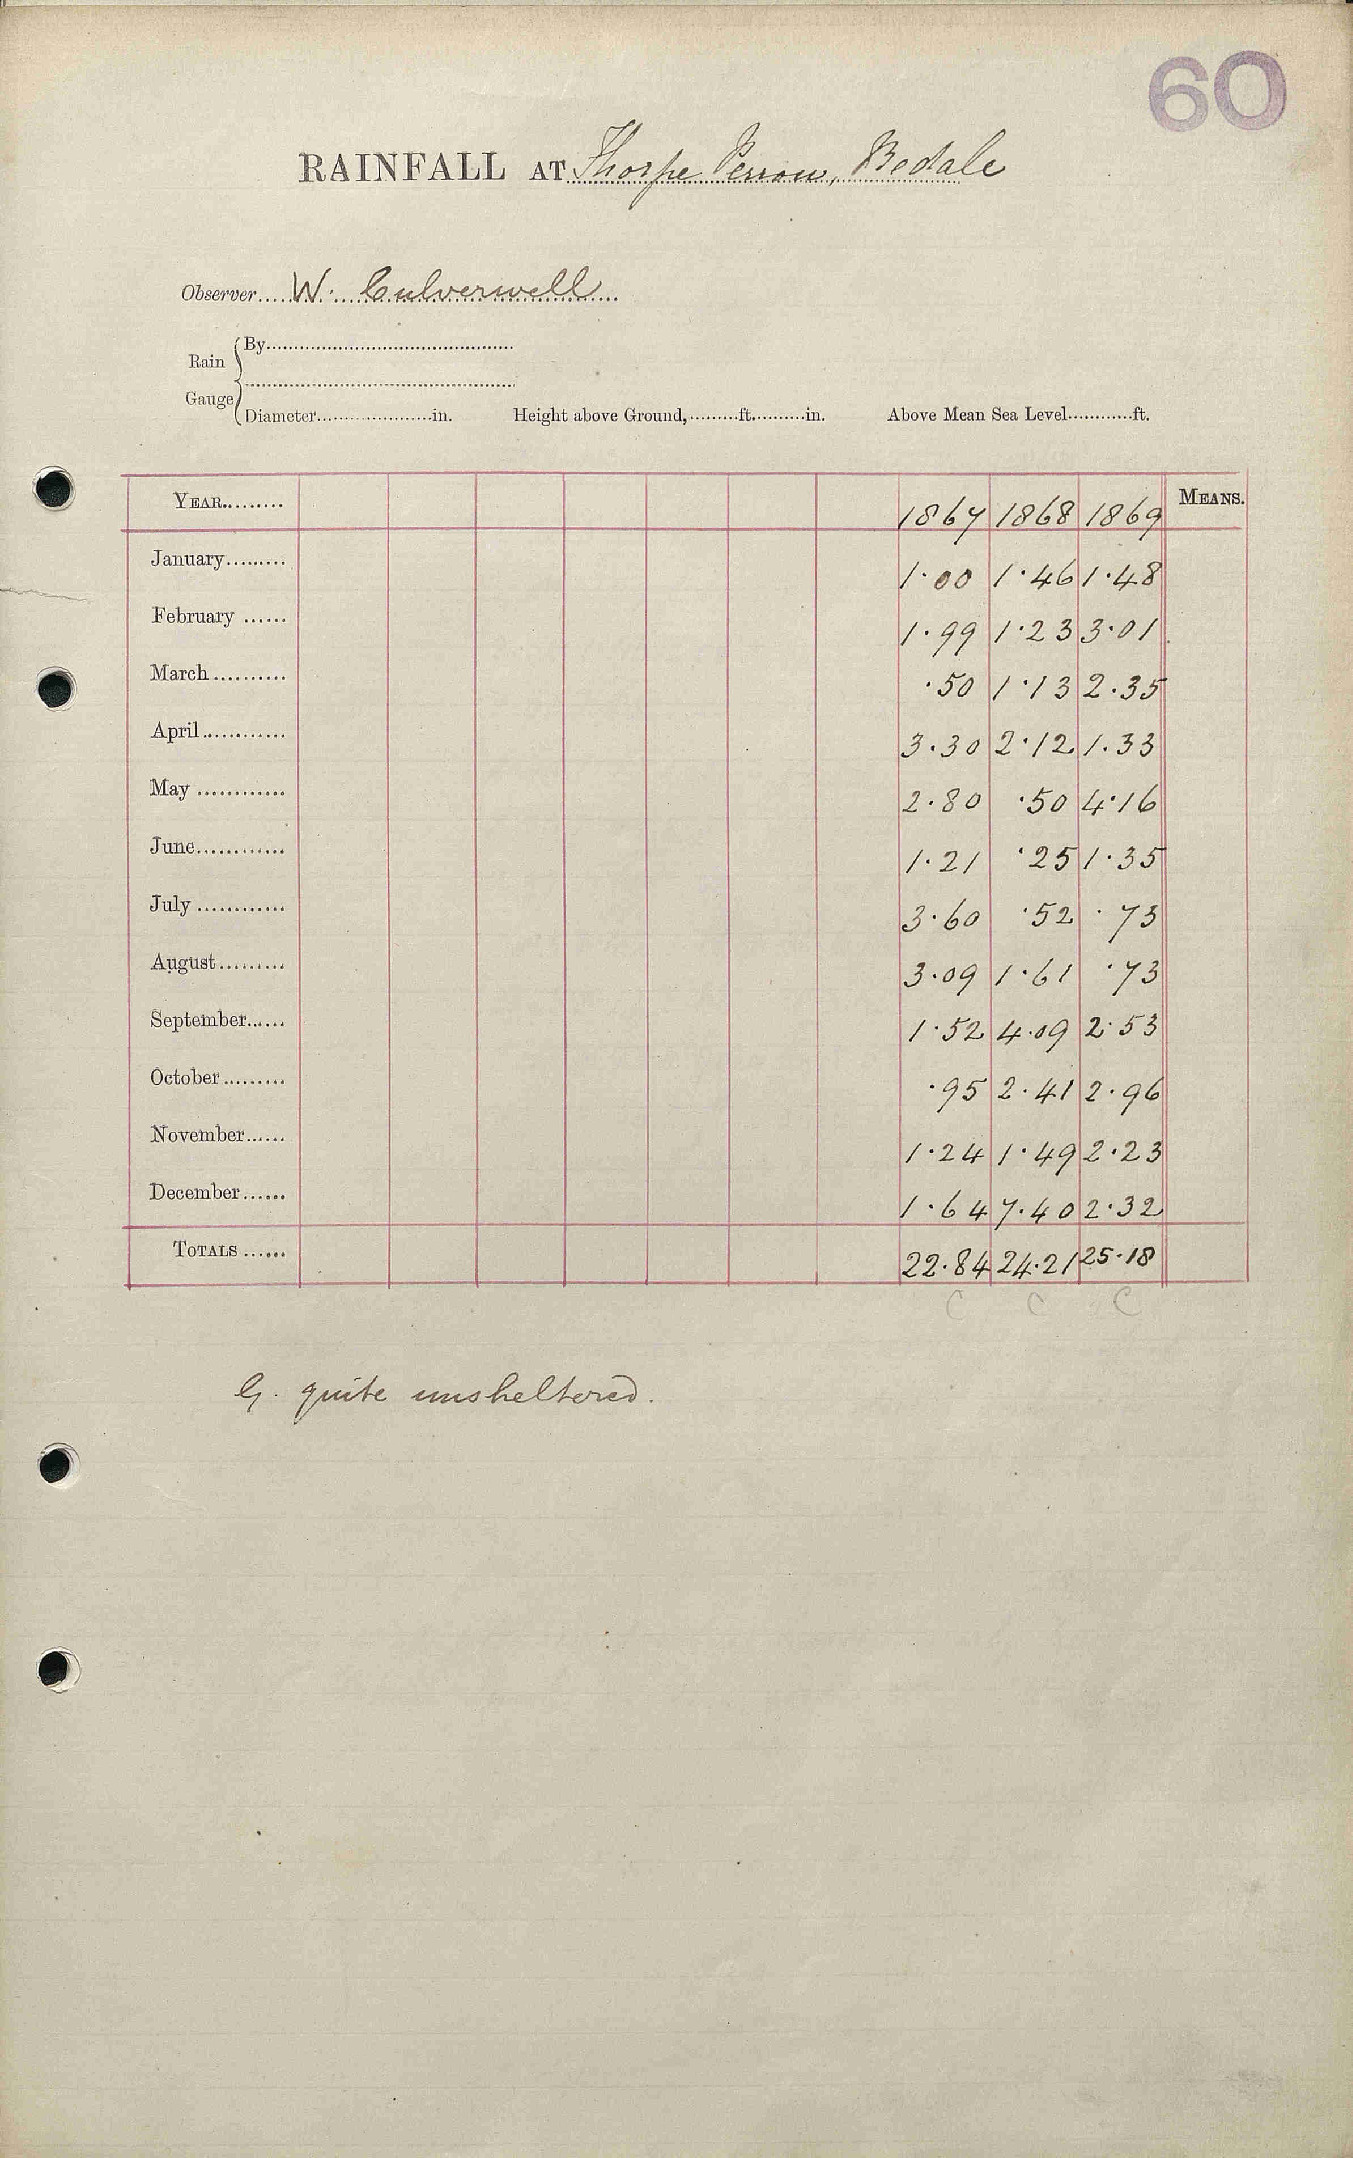 60
RAINFALL AT Thorpe Perrow, Bedale
Observer W. Culverwell
Rain Gauge
By
Diameter in. Height above Ground, ft. in. Above Mean Sea Level ft.
YEAR 1867 1868 1869 MEANS.
January 1.00 1.46 1.48
February 1.99 1.23 3.01
March .50 1.13 2.35
April 3.30 2.12 1.33
May 2.80 .50 4.16
June 1.21 .25 1.35
July 3.60 .52 .73
August 3.09 1.61 .73
September 1.52 4.09 2.53
October .95 2.41 2.96
November 1.24 1.49 2.23
December 1.64 7.40 2.32
TOTALS 22.84 24.21 25.18
C C C
G. quite unsheltered.